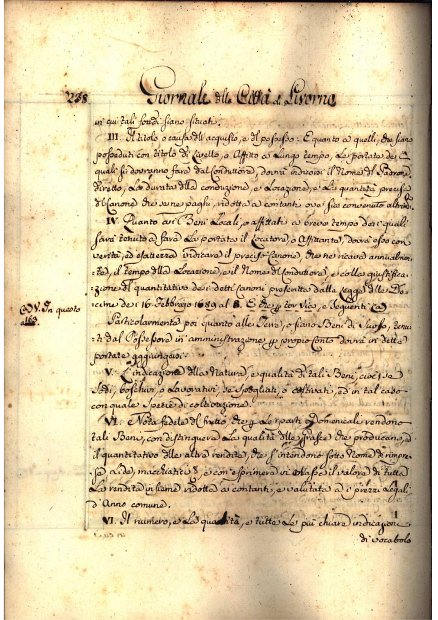 238 Giornale della Città di Livorno
in cui tali fondi siano situati.
III. Il titolo e causa di acquisto, e di possesso: E quanto a quelli, che siano
posseduti con titolo di Livello, o Affitto a lungo tempo, le portate dei
quali si dovranno fare dal Conduttore, dovrà dirvisi il Nome del Padrone
diretto, la durata della conduzione, e Locazione, e la quantità precisa
del Canone che se ne paghi, ridotta a contanti ove sia convenuto altro.
IV. Quanto ai Beni Locati, o affittati a breve tempo dei quali
sarà tenuto a fare la portata il Locatore, o Affittante, dovrà esso con
verità, ed esattezza indicare il preciso Canone che ne ricava annualmen-
te, il tempo della Locazione, e il Nome del Conduttore, e colle giustifica-
zioni di quantitativo dei detti Canoni prescritta dalla Legge delle De-
cime de 16 Febbrajo 1689 al §. E che per tor via, e seguenti (a)
(a) V. In questo
Particolarmente poi quanto alle Terre, o siano Beni di Suolo, tenu-
ti dal Possessore in amministrazione per proprio conto dovrà in dette
portate aggiungersi:
V. L'indicazione della Natura, e qualità di tali Beni, cioè se
Sodi, boschivi, o Lavorativi, se Spogliati, o Vitivati, ed in tal caso
con quale Sorte di coltivazione.
VI. Nota fedele del frutto che per le parti Domenicali rendono
tali Beni, con distinguere la qualità delle grasce che producano, e
il quantitativo delle altre rendite, che s'intendono sotto Nome di rinpre-
sa Lida, macchiatico &c. e con esprimervi in Massa il valore di tutta
la rendita insieme ridotta a contanti, e valutata a i prezzi Legali
d'Anno comune.
VI. Il numero, e la quantità, e tutte le più chiare indicazioni
di vocabolo